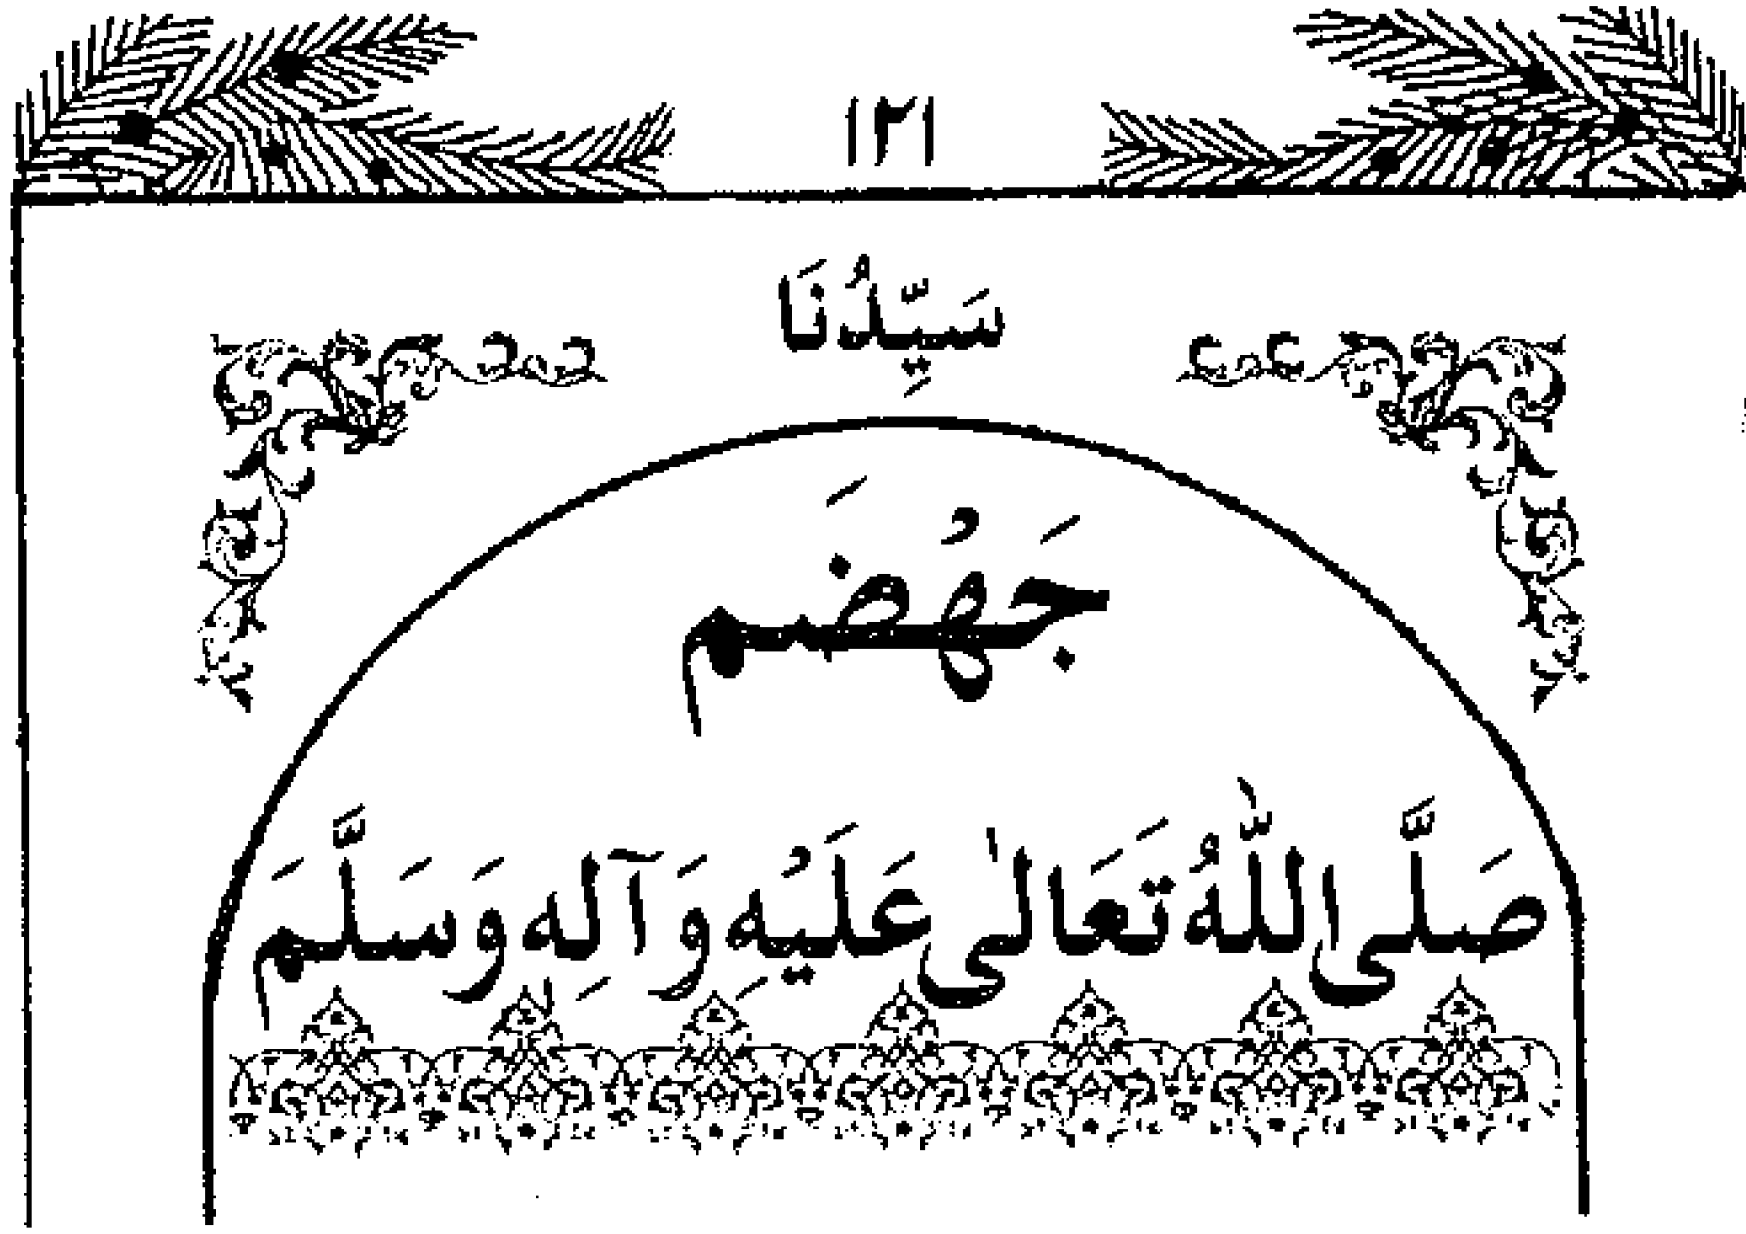 ١٢١
سَيِّدُنَا
جَهْضَم
صَلَّى اللّٰهُ تَعَالىٰ عَلَيْهِ وَآلِهِ وَسَلَّمَ